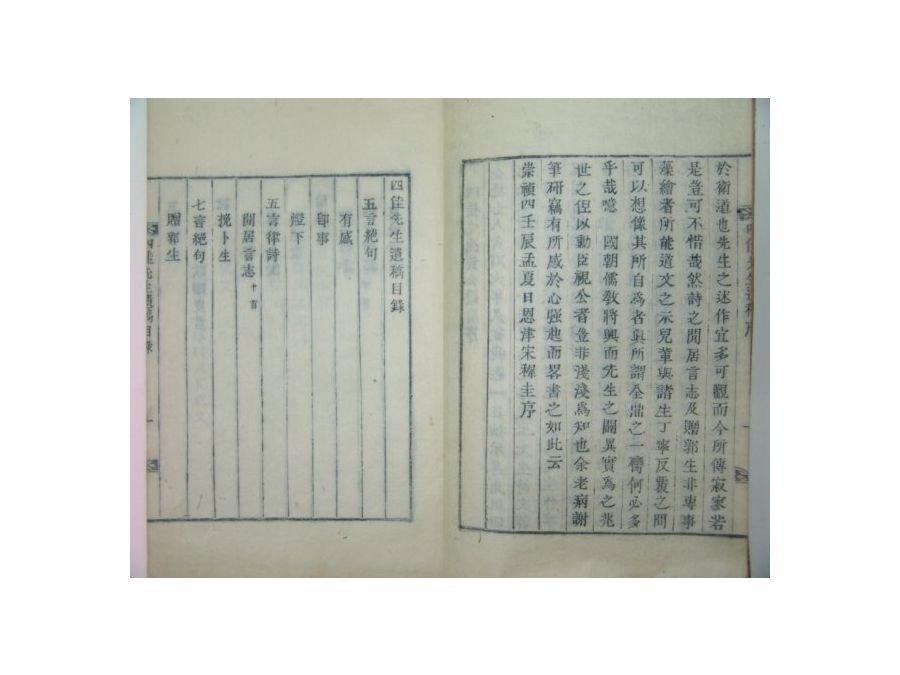 於衛道也先生之述作宜多可觀而今所傳寂寥若
是豈可不惜哉然詩之閒居言志及贈郭生非專事
藻繪者所能道文之示兒輩與諸生丁寧反覆之間
可以想像其所自為者眞所謂全鼎之一臠何必多
乎哉噫 國朝儒教將興而先生之闢異實為之兆
世之侭以勳臣視公者豈非淺淺為知也余老病謝
筆硏竊有所感於心強起而畧書之如此云
崇禎四壬辰孟夏日恩津宋穉圭序
四佳先生遺稿目錄
五言絶句
有感
即事
燈下
五言律詩
閒居言志 十首
挽卜生
七言絶句
贈郭生